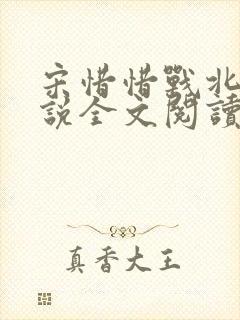 宋惜惜戰北
說全文閱讀
真香大王